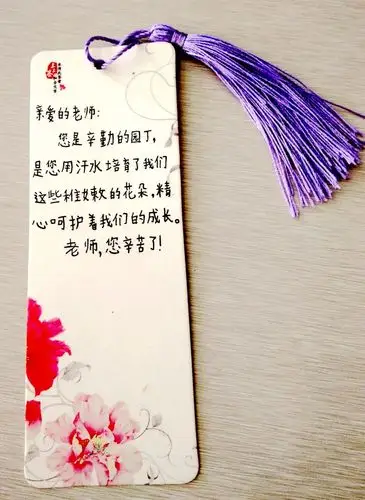 亲爱的老师:
您是辛勤的园丁,
是您用汗水培育了我们
这些稚嫩的花朵,精
心呵护着我们的成长。
老师,您辛苦了!